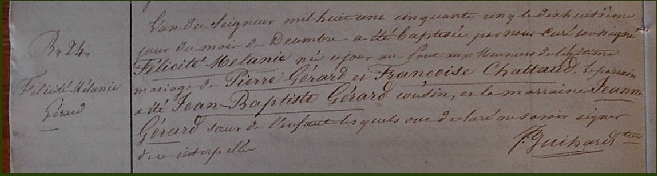 B. 24.
Felicité Mélanie
Gérard
L'an du Seigneur mil huit cent cinquante cinq le dix huitième
jour du mois de Décembre a été baptisée par nous Curé soussigné
Félicité Mélanie née ce jour au du légitime
mariage de Pierre Gérard et Françoise Chattaud. Le parrain
a été Jean-Baptiste Gérard cousin, et la marraine Jeanne
Gérard sœur de l'enfant lesquels ont déclaré ne savoir signer
de ce interpellés
P. Guihard